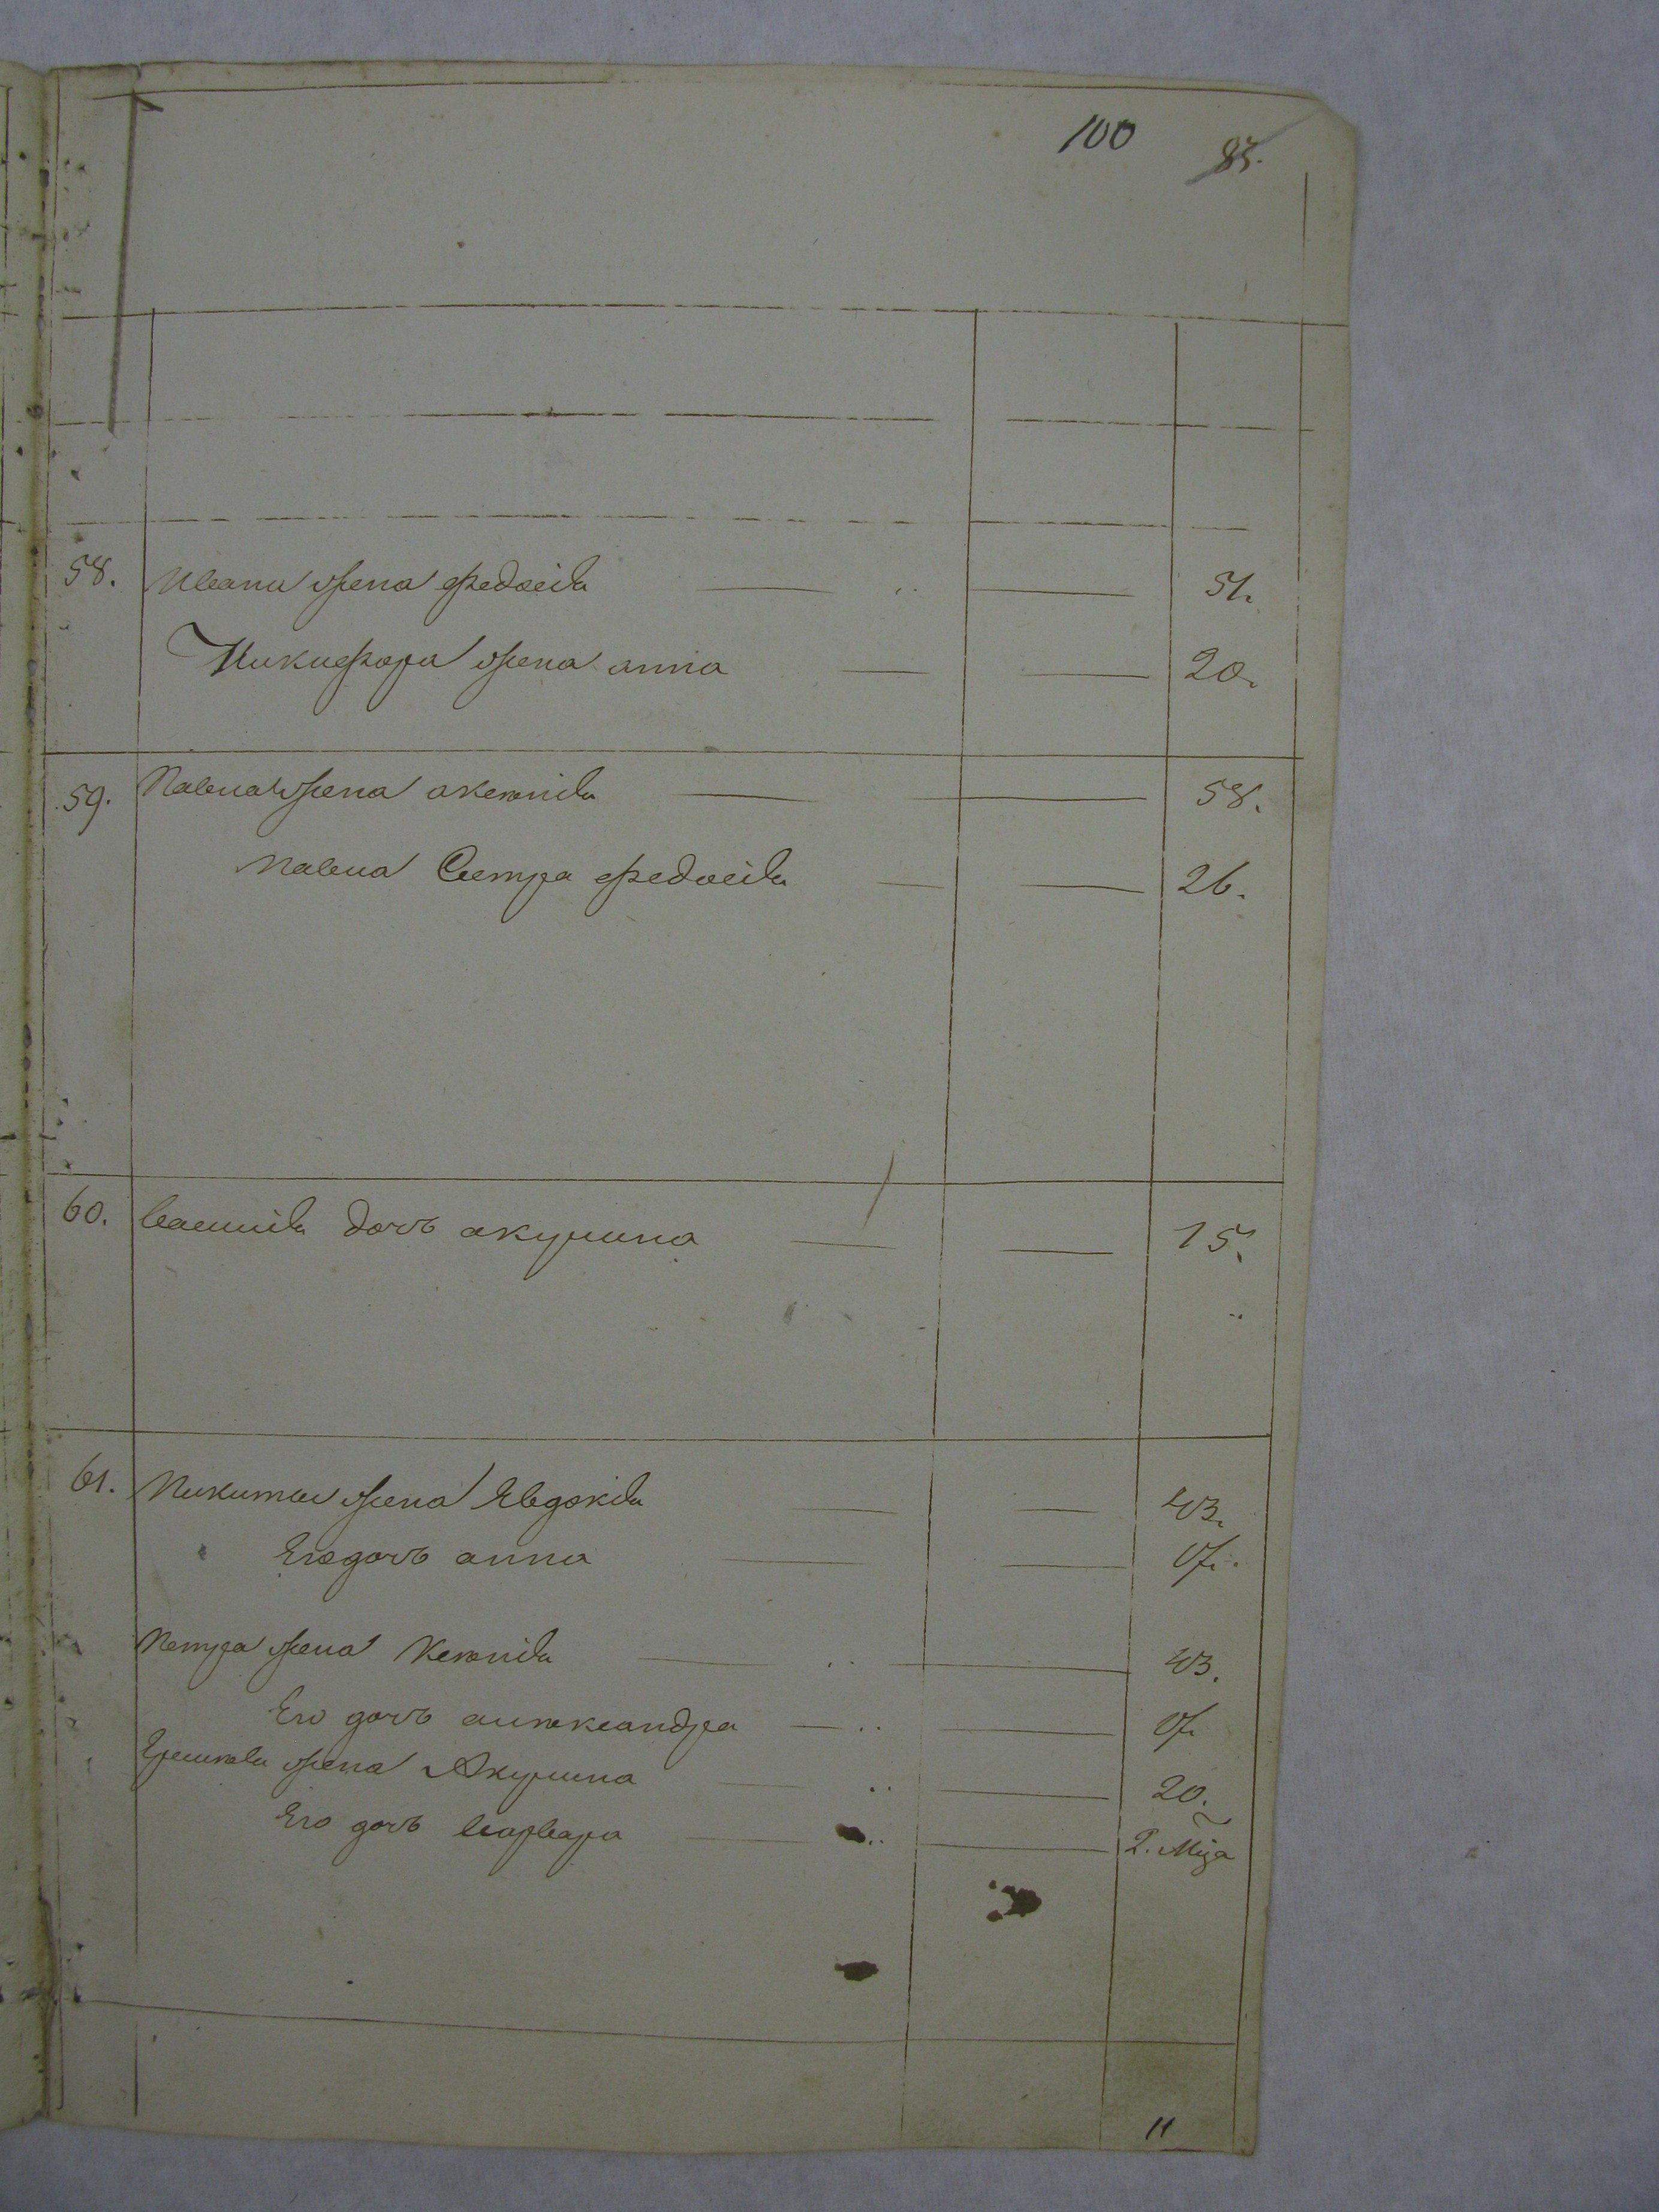 100 83.
58. Ивана жена федосья 51.
Никифора жена анна 20.
59. Павла жена аксинья 58.
Павла Сестра федосья 26.
60. василья дочь акулина 15.
61. Никиты жена Евдокья 43.
Его дочь анна
Петра жена Ксенья 43.
Его дочь александра
жена Акулина 20.
Его дочь варвара 2. меся
11